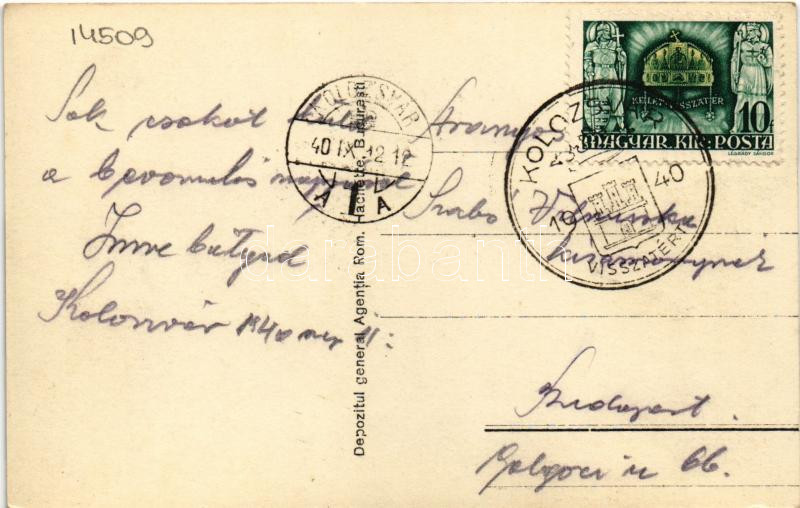 14509
Sok csókot küld
a bevonulás napjáról
Imre bátyád
Kolozsvár 1940 11.
KOLOZSVÁR
40 IX 12 12
A A
Depozitul general Agenția Rom. Hachette, București
KELET VISSZATÉR
10f
MAGYAR KIR. POSTA
LÉGRÁDY SÁNDOR
KOLOZSVÁR
1940
VISSZATÉRT
Aranyos
Szabó
kisasszonynak
Budapest.
u 66.
darabanth